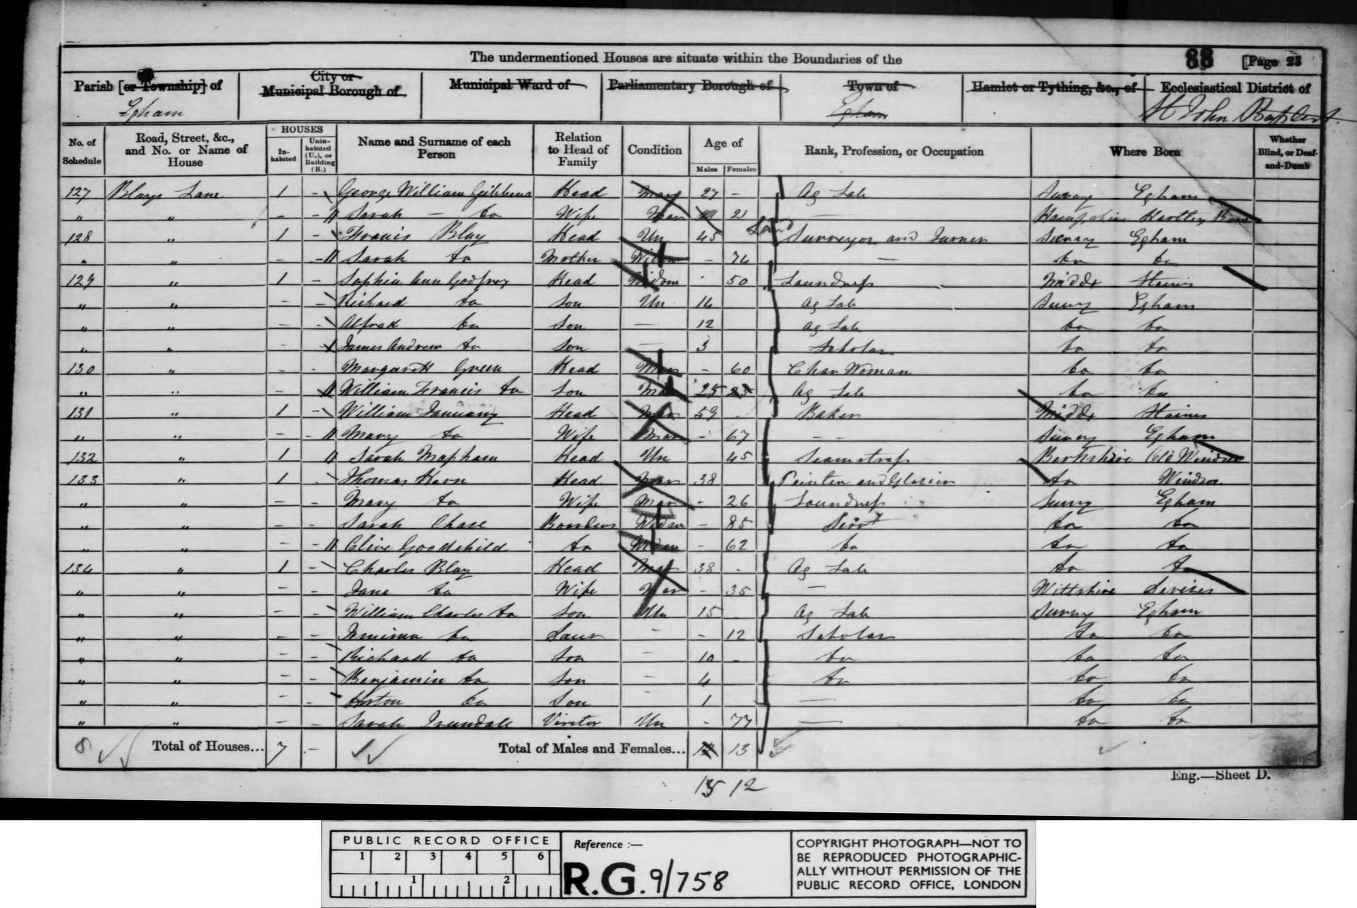 The undermentioned Houses are situate within the Boundaries of the
88 [Page 23
Parish [or Township] of
City or
Municipal Borough of
Municipal Ward of
Parliamentary Borough of
Town of
Hamlet or Tything, &c., of
Ecclesiastical District of
Egham Egham St John Baptist
No. of Schedule
Road, Street, &c., and No. or Name of House
HOUSES
Inhabited
Uninhabited (U.), or Building (B.)
Name and Surname of each Person
Relation to Head of Family
Condition
Age of
Males Females
Rank, Profession, or Occupation
Where Born
Whether Blind, or Deaf-and-Dumb
127 Blays Lane 1 - George William Gibbens Head Mar 27 - Ag Lab Surrey Egham
" " - - Sarah - do Wife Mar 21 - Hampshire Hartley
128 " 1 - Francis Blay Head Un 45 Land Surveyor and Surrey Egham
" " - - Sarah do Mother Widow - 74 - do do
129 " 1 - Sophia Ann Godfrey Head Widow - 50 Laundress Middx Staines
" " - - Richard do Son Un 14 Ag Lab Surrey Egham
" " - - Alfred do Son - 12 Ag Lab do do
" " - - James Andrew do Son - 3 Scholar do do
130 " Margarett Green Head - 60 Char Woman do do
" " - - William Francis do Son 25 Ag Lab do do
131 " 1 - William January Head Mar 59 - Baker Middx Staines
" " - - Mary do Wife Mar - 67 - - Surrey Egham
132 " 1 Sarah Mapham Head Un 45 Seamstress Berkshire Old Windsor
133 " 1 - Thomas Head Mar 38 Painter and Glazier do Windsor
" " - - Mary do Wife Mar - 26 Laundress Surrey Egham
" " - - Sarah Chase Boarder Widow - 85 do do
" " - - Goodchild do Widow - 62 do do do
134 " 1 - Charles Blay Head Mar 38 - Ag Lab do do
" " - - Jane do Wife Mar - 35 - Wiltshire Devizes
" " - - William Charles do Son Un 15 Ag Lab Surrey Egham
" " - - do Daur - - 12 Scholar do do
" " - - Richard do Son - 10 - do do do
" " - - Benjamin do Son - 4 do do do
" " - - do Son - 1 - do do
" " - - Sarah Visitor Un - 77 - do do
8 Total of Houses... 7 - Total of Males and Females... 12 13
15 12
Eng.—Sheet D.
PUBLIC RECORD OFFICE
1 2 3 4 5 6
1 2
Reference :—
R.G. 9/758
COPYRIGHT PHOTOGRAPH—NOT TO
BE REPRODUCED PHOTOGRAPHIC-
ALLY WITHOUT PERMISSION OF THE
PUBLIC RECORD OFFICE, LONDON